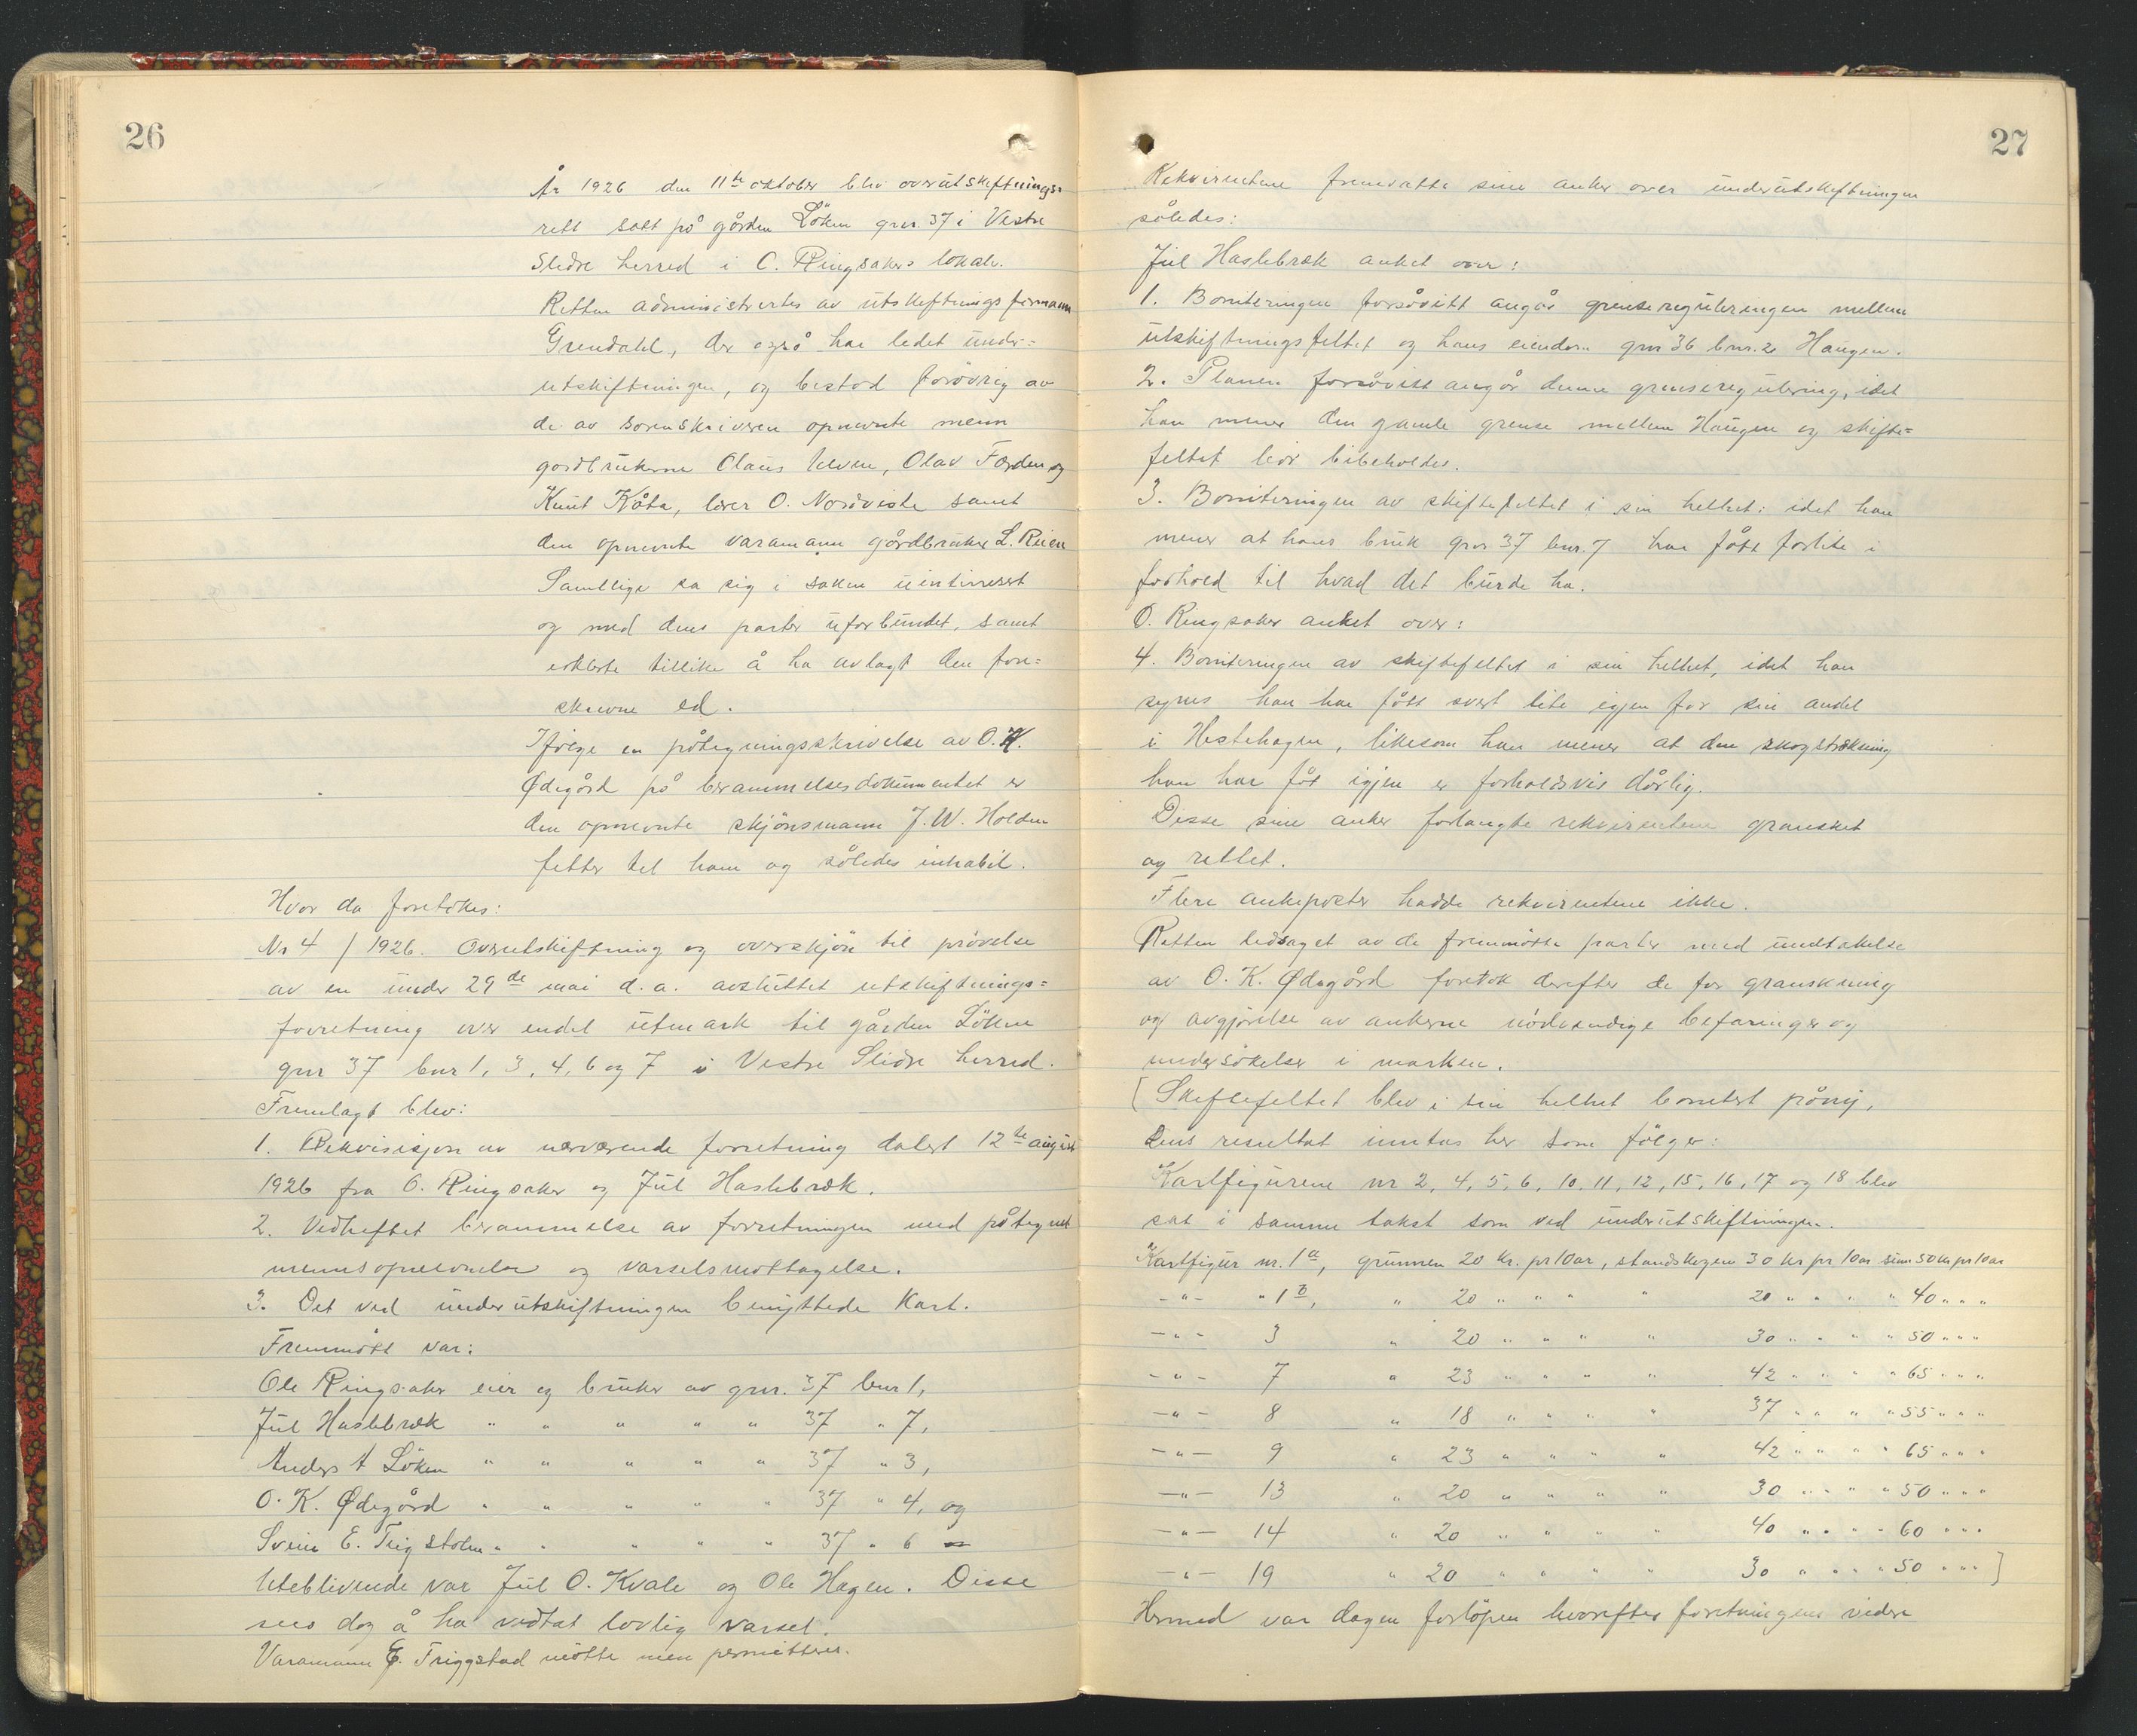 26
År 1926 den 11te oktober blev overutskiftnings-
rett satt på gården Löken gnr. 37 i Vestre
Slidre herred i O. Ringsakers lokale.
Retten administrertes av utskiftningsformann
Grendahl, der også har ledet under-
utskiftningen, og bestod forövrig av
de av sorenskriveren opnevnte menn
gardbrukerne Olaus Ulven, Olav Förden og
Knut Kåta, lærer O. Nordviste samt
den opnevnte varamann gårdbruker L. Rien
Samtlige sa sig i saken uinteressert
og med dens parter uforbundet, samt
erklærte tillike å ha avlagt den fore-
skrevne ed.
Ifölge en påtegningsskrivelse av O. K.
Ødegård på berammelsesdokumentet er
den opnevnte skjönsmann J. W. Holden
fetter til ham og således inhabil.
Hvor da foretokes:
Nr 4 / 1926. Overutskiftning og overskjön til prövelse
av en under 29de mai d.a. avsluttet utskiftnings-
forretning over endel utmark til gården Löken
gnr 37 bnr 1, 3, 4, 6 og 7 i Vestre Slidre herred.
Fremlagt blev:
1. Rekvisisjon av nærværende forretning datert 12te august
1926 fra O. Ringsaker og Jul Haslebræk.
2. Vedheftet berammelse av forretningen med påtegnet
mennsopnevnelse og varselsmottagelse.
3. Det ved underutskiftningen benyttede kart.
Fremmött var:
Ole Ringsaker eier og bruker av gnr. 37 bnr 1,
Jul Haslebræk " " " " " 37 " 7,
Anders A Löken " " " " " 37 " 3,
O. K. Ødegård " " " " " 37 " 4, og
Svein E. Trigstolen " " " " " 37 " 6
Uteblivende var Jul O. Kvale og Ole Hagen. Disse
sees dog å ha vedtat lovlig varsel.
Varamann E. Triggstad mötte men permitteres.
27
Rekvirentene fremsatte sine anker over underutskiftningen
således:
Jul Haslebræk anket over:
1. Boniteringen forsåvitt angår grensereguleringen mellem
utskiftningsfeltet og hans eiendom gnr 36 bnr. 2 Haugen.
2. Planen forsåvitt angår denne grenseregulering, idet
han mener den gamle grense mellem Haugen og skifte-
feltet bör bibeholdes.
3. Boniteringen av skiftefeltet i sin helhet: idet han
mener at hans bruk gnr 37 bnr. 7 har fått forlite i
forhold til hvad det burde ha.
O. Ringsaker anket over:
4. Boniteringen av skiftefeltet i sin helhet, idet han
synes han har fått svært lite igjen for sin andel
i Hestehagen, likesom han mener at den skogstrekning
han har fåt igjen er forholdsvis dårlig.
Disse sine anker forlangte rekvirentene gransket
og rettet.
Flere ankeposter hadde rekvirentene ikke.
Retten ledsaget av de fremmötte parter med undtakelse
av O. K. Ødegård foretok derefter de for granskning
og avgjörelse av ankerne nödvendige befaringer og
undersökelser i marken.
[ Skiftefeltet blev i sin helhet bonitert påny,
dens resultat inntas her som fölger:
Kartfigurene nr 2, 4, 5, 6, 10, 11, 12, 15, 16, 17 og 18 blev
sat i samme takst som ved underutskiftningen.
Kartfigur nr. 1a, grunnen 20 kr. pr 10ar, standskogen 30 kr pr 10ar sum 50 kr pr 10ar
-"- " 1b, " 20 " " " " 20 " " " " 40 " " "
-"- 3 " 20 " " " " 30 " " " " 50 " " "
-"- 7 " 23 " " " " 42 " " " " 65 " " "
-"- 8 " 18 " " " " 37 " " " " 55 " " "
-"- 9 " 23 " " " " 42 " " " " 65 " " "
-"- 13 " 20 " " " " 30 " " " " 50 " " "
-"- 14 " 20 " " " " 40 " " " " 60 " " "
-"- 19 " 20 " " " " 30 " " " " 50 " " " ]
Hermed var dagen forlöpen hvorefter forretningens videre